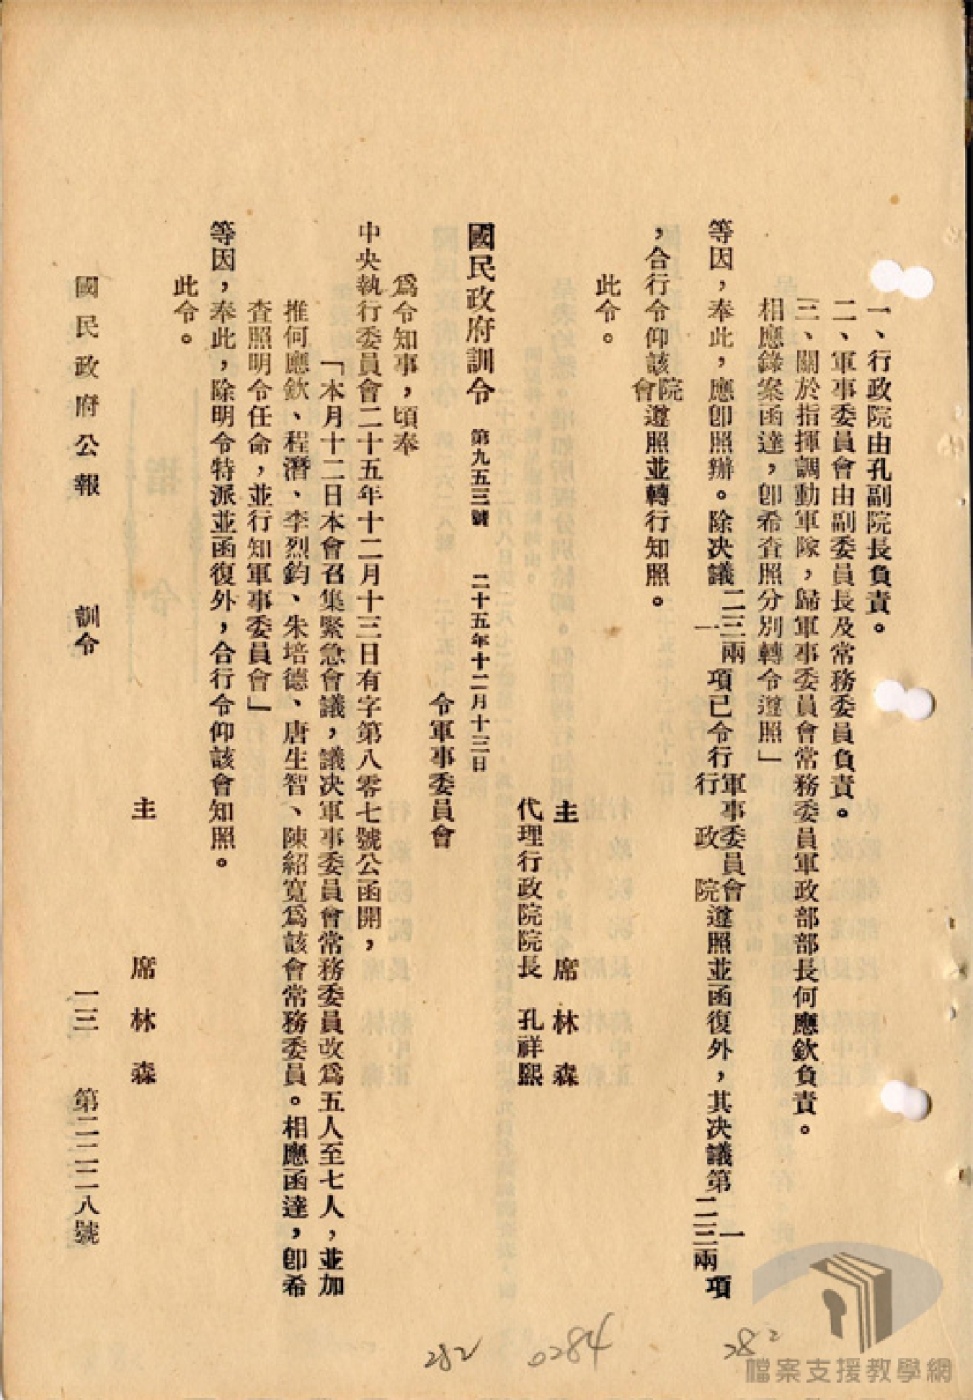 一、行政院由孔副院長負責。
二、軍事委員會由副委員長及常務委員負責。
三、關於指揮調動軍隊，歸軍事委員會常務委員軍政部部長何應欽負責。
相應錄案函達，卽希查照分別轉令遵照」
等因，奉此，應卽照辦。除決議二三兩一項已令行軍事委員會行政院遵照並函復外，其決議第一二三兩項
，合行令仰該院會遵照並轉行知照。
此令。
主席林森
代理行政院院長 孔祥熙
國民政府訓令 第九五三號 二十五年十二月十三日
令軍事委員會
爲令知事，頃奉
中央執行委員會二十五年十二月十三日有字第八零七號公函開，
「本月十二日本會召集緊急會議，議決軍事委員會常務委員改爲五人至七人，並加
推何應欽、程潛、李烈鈞、朱培德、唐生智、陳紹寬爲該會常務委員。相應函達，卽希
查照明令任命，並行知軍事委員會」
等因，奉此，除明令特派並函復外，合行令仰該會知照。
此令。
主席林森
國民政府公報 訓令 一三 第二二二八號
282
0284
282
檔案支援教學網